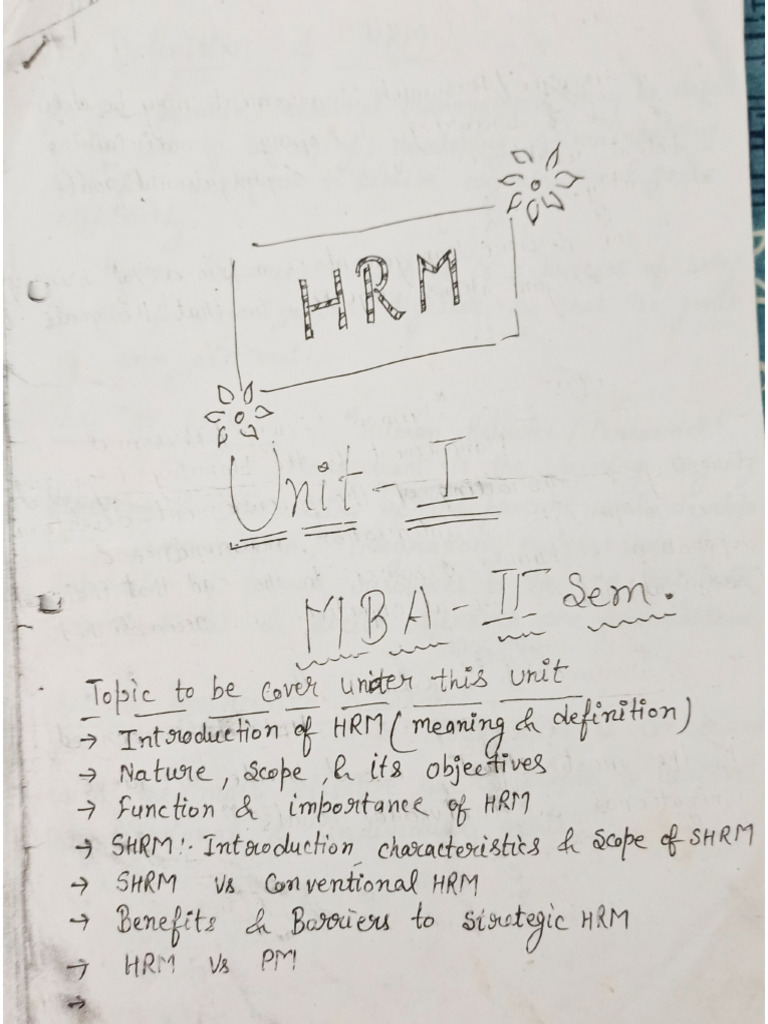 HRM
Unit - I
MBA - II Sem.
Topic to be cover under this unit
→ Introduction of HRM ( meaning & definition )
→ Nature, Scope, & its objectives
→ Function & importance of HRM
→ SHRM :- Introduction, characteristics & Scope of SHRM
→ SHRM Vs Conventional HRM
→ Benefits & Barriers to Stretegic HRM
→ HRM Vs PM
→